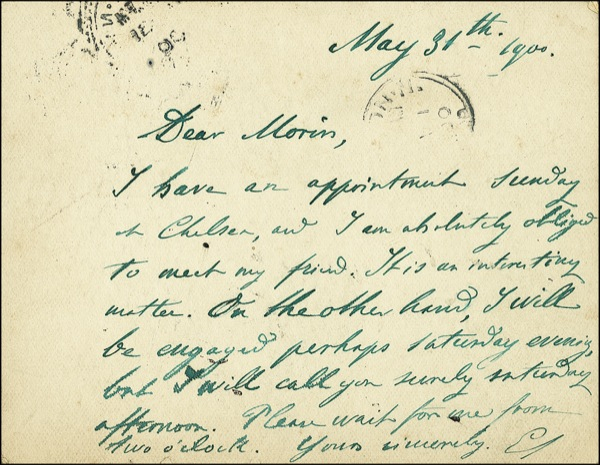 May 31th 1900.
Dear Moriss,
I have an appointment Sunday
at Chelsea, and I am absolutely obliged
to meet my friend. It is an interesting
matter. On the other hand, I will
be engaged perhaps saturday evening,
but I will call you surely saturday
afternoon. Please wait for me from
two o'clock. Yours sincerely.